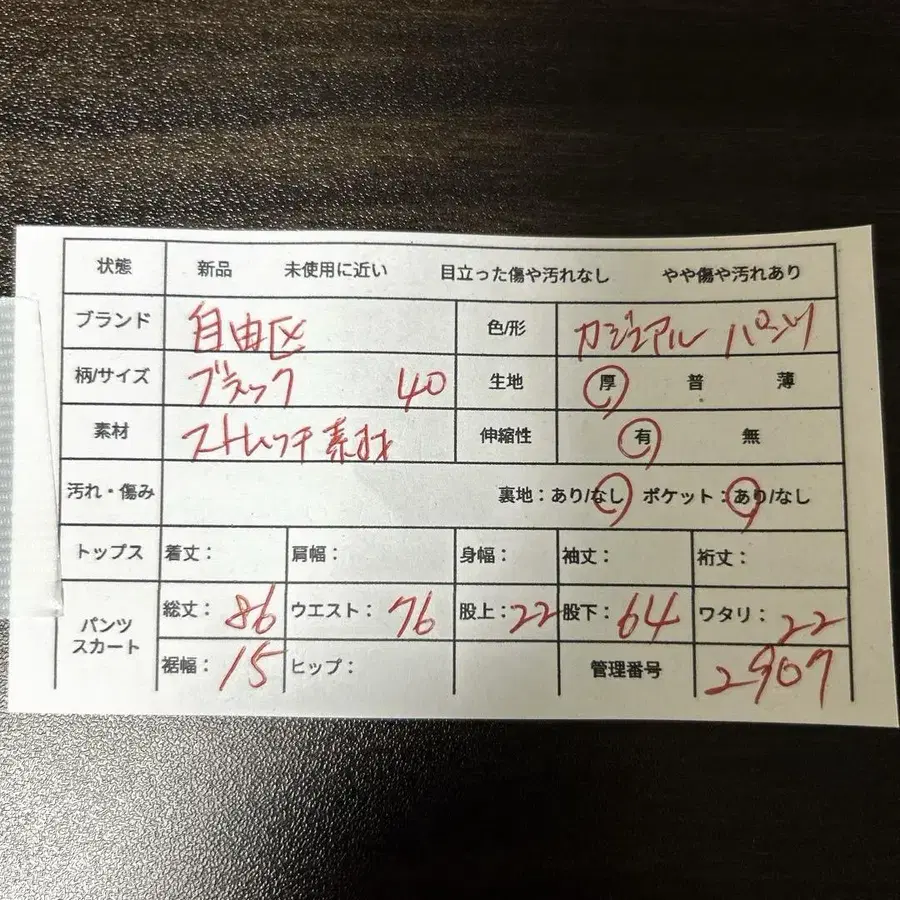 状態 新品 未使用に近い 目立った傷や汚れなし やや傷や汚れあり
ブランド 自由区 色/形 カジュアル パンツ
柄/サイズ ブラック 40 生地 厚 普 薄
素材 ストレッチ素材 伸縮性 有 無
汚れ・傷み 裏地：あり/なし ポケット：あり/なし
トップス 着丈： 肩幅： 身幅： 袖丈： 裄丈：
パンツ スカート 総丈：86 ウエスト：76 股上：22 股下：64 ワタリ：22
裾幅：15 ヒップ： 管理番号 2907